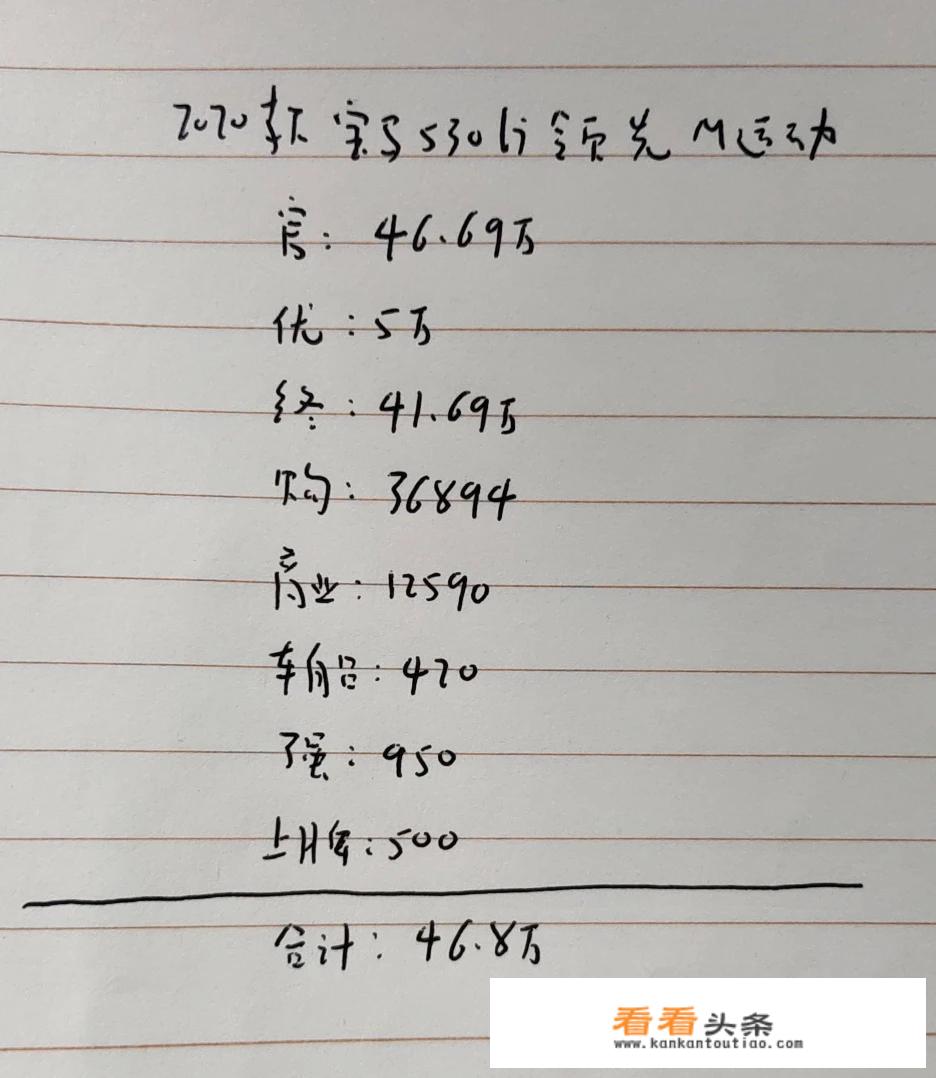 2020款宝马530li领先M运动
官：46.69万
优：5万
终：41.69万
购：36894
商业：12590
车船：470
强：950
上牌：500
合计：46.8万
看看头条
www.kankantoutiao.com